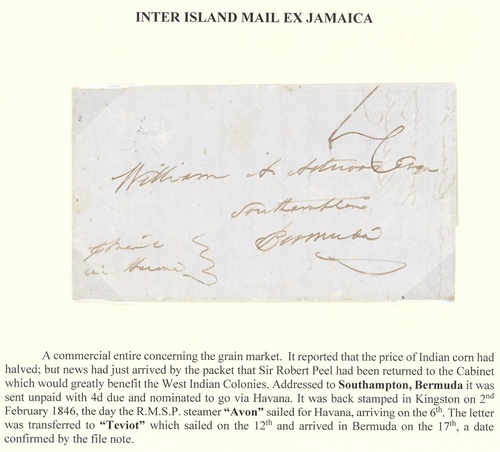 INTER ISLAND MAIL EX JAMAICA
William A. Esqr
Southampton
Bermuda
via Havana
A commercial entire concerning the grain market. It reported that the price of Indian corn had
halved; but news had just arrived by the packet that Sir Robert Peel had been returned to the Cabinet
which would greatly benefit the West Indian Colonies. Addressed to Southampton, Bermuda it was
sent unpaid with 4d due and nominated to go via Havana. It was back stamped in Kingston on 2nd
February 1846, the day the R.M.S.P. steamer “Avon” sailed for Havana, arriving on the 6th. The letter
was transferred to “Teviot” which sailed on the 12th and arrived in Bermuda on the 17th, a date
confirmed by the file note.